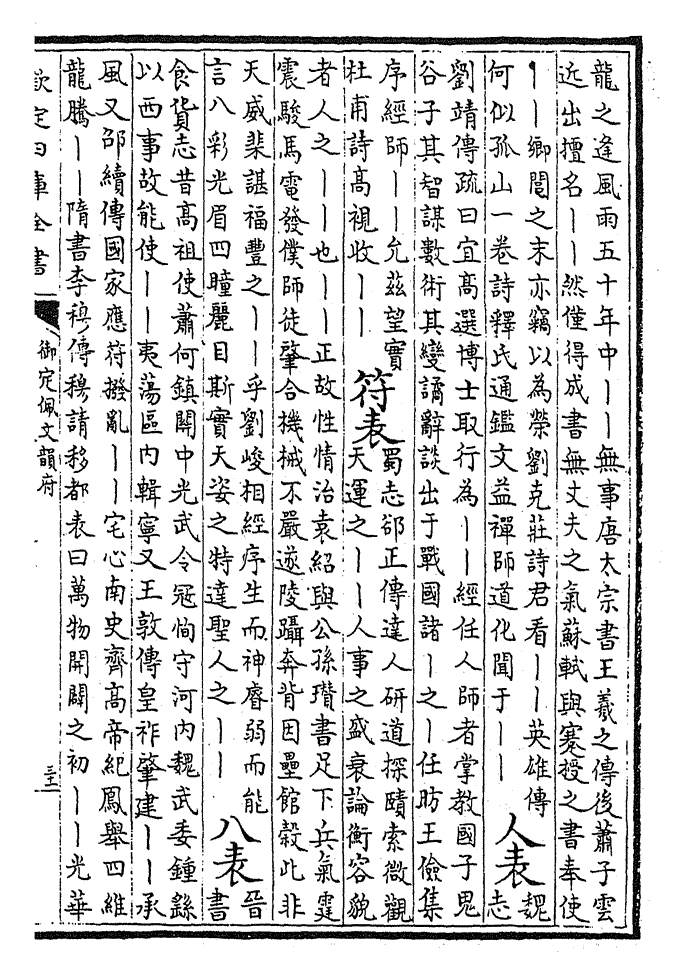 龍之逢風雨五十年中丨丨無事唐太宗書王羲之傳後蕭子雲
近出擅名丨丨然僅得成書無丈夫之氣蘇軾與蹇授之書奉使
丨丨鄉閭之末亦竊以為榮劉克莊詩君看丨丨英雄傳
何似孤山一卷詩釋氏通鑑文益禪師道化聞于丨丨
人表
魏
志
劉靖傳疏曰宜髙選博士取行為丨丨經任人師者掌教國子鬼
谷子其智謀數術其變譎辭談出于戰國諸丨之丨任昉王儉集
序經師丨丨允茲望實
杜甫詩髙視收丨丨
符表
蜀志郤正傳達人研道探賾索微觀
天運之丨丨人事之盛衰論衡容貌
者人之丨丨也丨丨正故性情治袁紹與公孫瓚書足下兵氣霆
震駿馬電發僕師徒肇合機械不嚴遂陵躡奔背因壘館榖此非
天威棐諶福豐之丨丨乎劉峻相經序生而神睿弱而能
言八彩光眉四瞳麗目斯實天姿之特達聖人之丨丨
八表
晉
書
食貨志昔髙祖使蕭何鎮關中光武令冦恂守河内魏武委鍾繇
以西事故能使丨丨夷蕩區内輯寧又王敦傳皇祚肇建丨丨承
風又邵續傳國家應符撥亂丨丨宅心南史齊髙帝紀鳳舉四維
龍騰丨丨隋書李穆傳穆請移都表曰萬物開闢之初丨丨光華
欽定四庫全書
御定佩文韻府